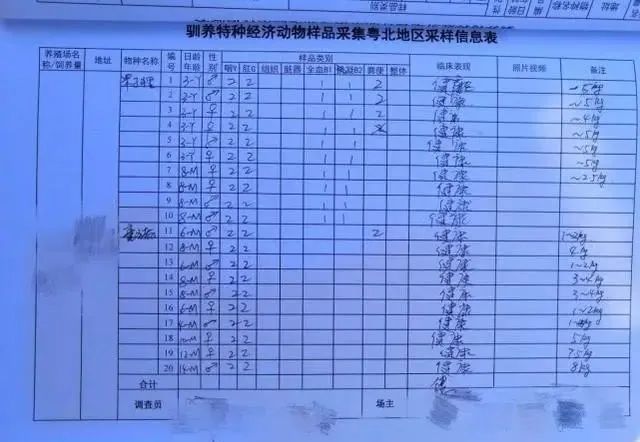 驯养特种经济动物样品采集粤北地区采样信息表
养殖场名称/饲养量 地址 物种名称 编号 日龄年龄 性别 样品类别 临床表现 照片视频 备注
咽Y 肛G 组织 脏器 全血B1 抗凝B2 粪便 整体
果子狸 1 3-Y ♂ 2 2 1 1 2 健康 ~5kg
2 2-Y ♂ 2 2 1 1 2 健康 ~5kg
3 2-Y ♀ 2 2 1 1 2 健康 ~4kg
4 3-Y ♀ 2 2 1 1 健康 ~5kg
5 2-Y ♂ 2 2 1 1 健康 ~5kg
6 3-Y ♀ 2 2 1 1 健康 ~5kg
7 8-M ♀ 2 2 1 1 健康 ~2.5kg
8 8-M ♀ 2 2 1 1 健康
9 8-M ♂ 2 2 1 1 健康
10 8-M ♂ 2 2 1 1 健康
11 6-M ♂ 2 2 2 健康 1~2kg
12 8-M ♀ 2 2 健康 4kg
13 6-M ♂ 2 2 健康 1~2kg
14 8-M ♀ 2 2 健康 3~4kg
15 8-M ♂ 2 2 健康 3~4kg
16 6-M ♀ 2 2 健康 1~2kg
17 ♂ 2 2 健康
18 ♀ 2 2 健康 5kg
19 12-M ♀ 2 2 健康 7.5kg
20 14-M ♂ 2 2 健康 8kg
合计
调查员 场主